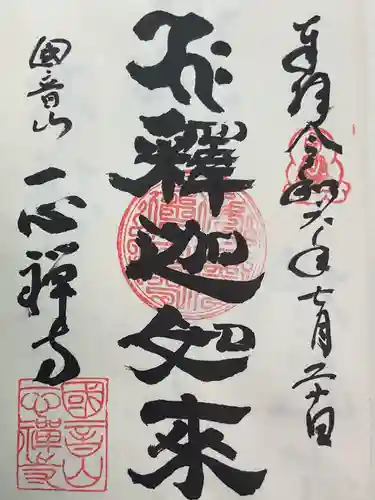 奉拝 令和六年七月二十日
釋迦如來
國音山 一心禅寺
國音山
一心禅寺